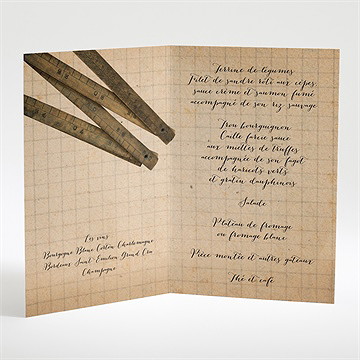 Les vins
Bourgogne Blanc Corton Charlemagne
Bordeaux Saint-Emilion Grand Cru
Champagne
Terrine de légumes
Filet de sandre rôti aux cèpes,
sauce crème et saumon fumé
accompagné de son riz sauvage
Trou bourguignon
Caille farcie sauce
aux miettes de truffes
accompagnée de son fagot
de haricots verts
et gratin dauphinois
Salade
Plateau de fromage
ou fromage blanc
Pièce montée et autres gâteaux
Thé et café